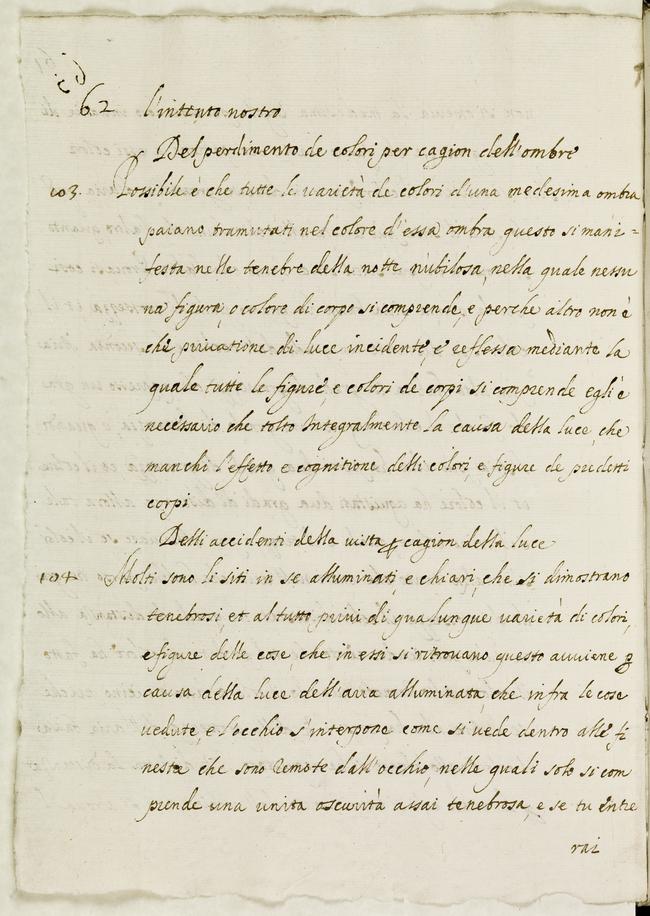 62
l'intento nostro
Del perdimento de colori per cagion dell'ombre
103. Possibile è che tutte le varietà de colori d'una medesima ombra
paiano tramutati nel colore d'essa ombra questo si mani=
festa nelle tenebre della notte nubilosa, nella quale nessu
na figura, o colore di corpo si comprende, e perche altro non è
che privatione di luce incidente, e reflessa mediante la
quale tutte le figure, e colori de corpi si comprende egli è
necessario che tolto Integralmente la causa della luce, che
manchi l'effetto, e cognitione delli colori, e figure de predetti
corpi
Delli accidenti della vista ꝑ cagion della luce
104 Molti sono li siti in se alluminati, e chiari, che si dimostrano
tenebrosi, et al tutto privi di qualunque varietà di colori,
e figure delle cose, che in essi si ritrovano questo avviene ꝑ
causa della luce dell'aria alluminata, che infra le cose
vedute, e l'occhio s'interpone come si vede dentro alle fi
nestre che sono remote dall'occhio, nelle quali solo si com
prende una unita oscurità assai tenebrosa, e se tu entre
rai